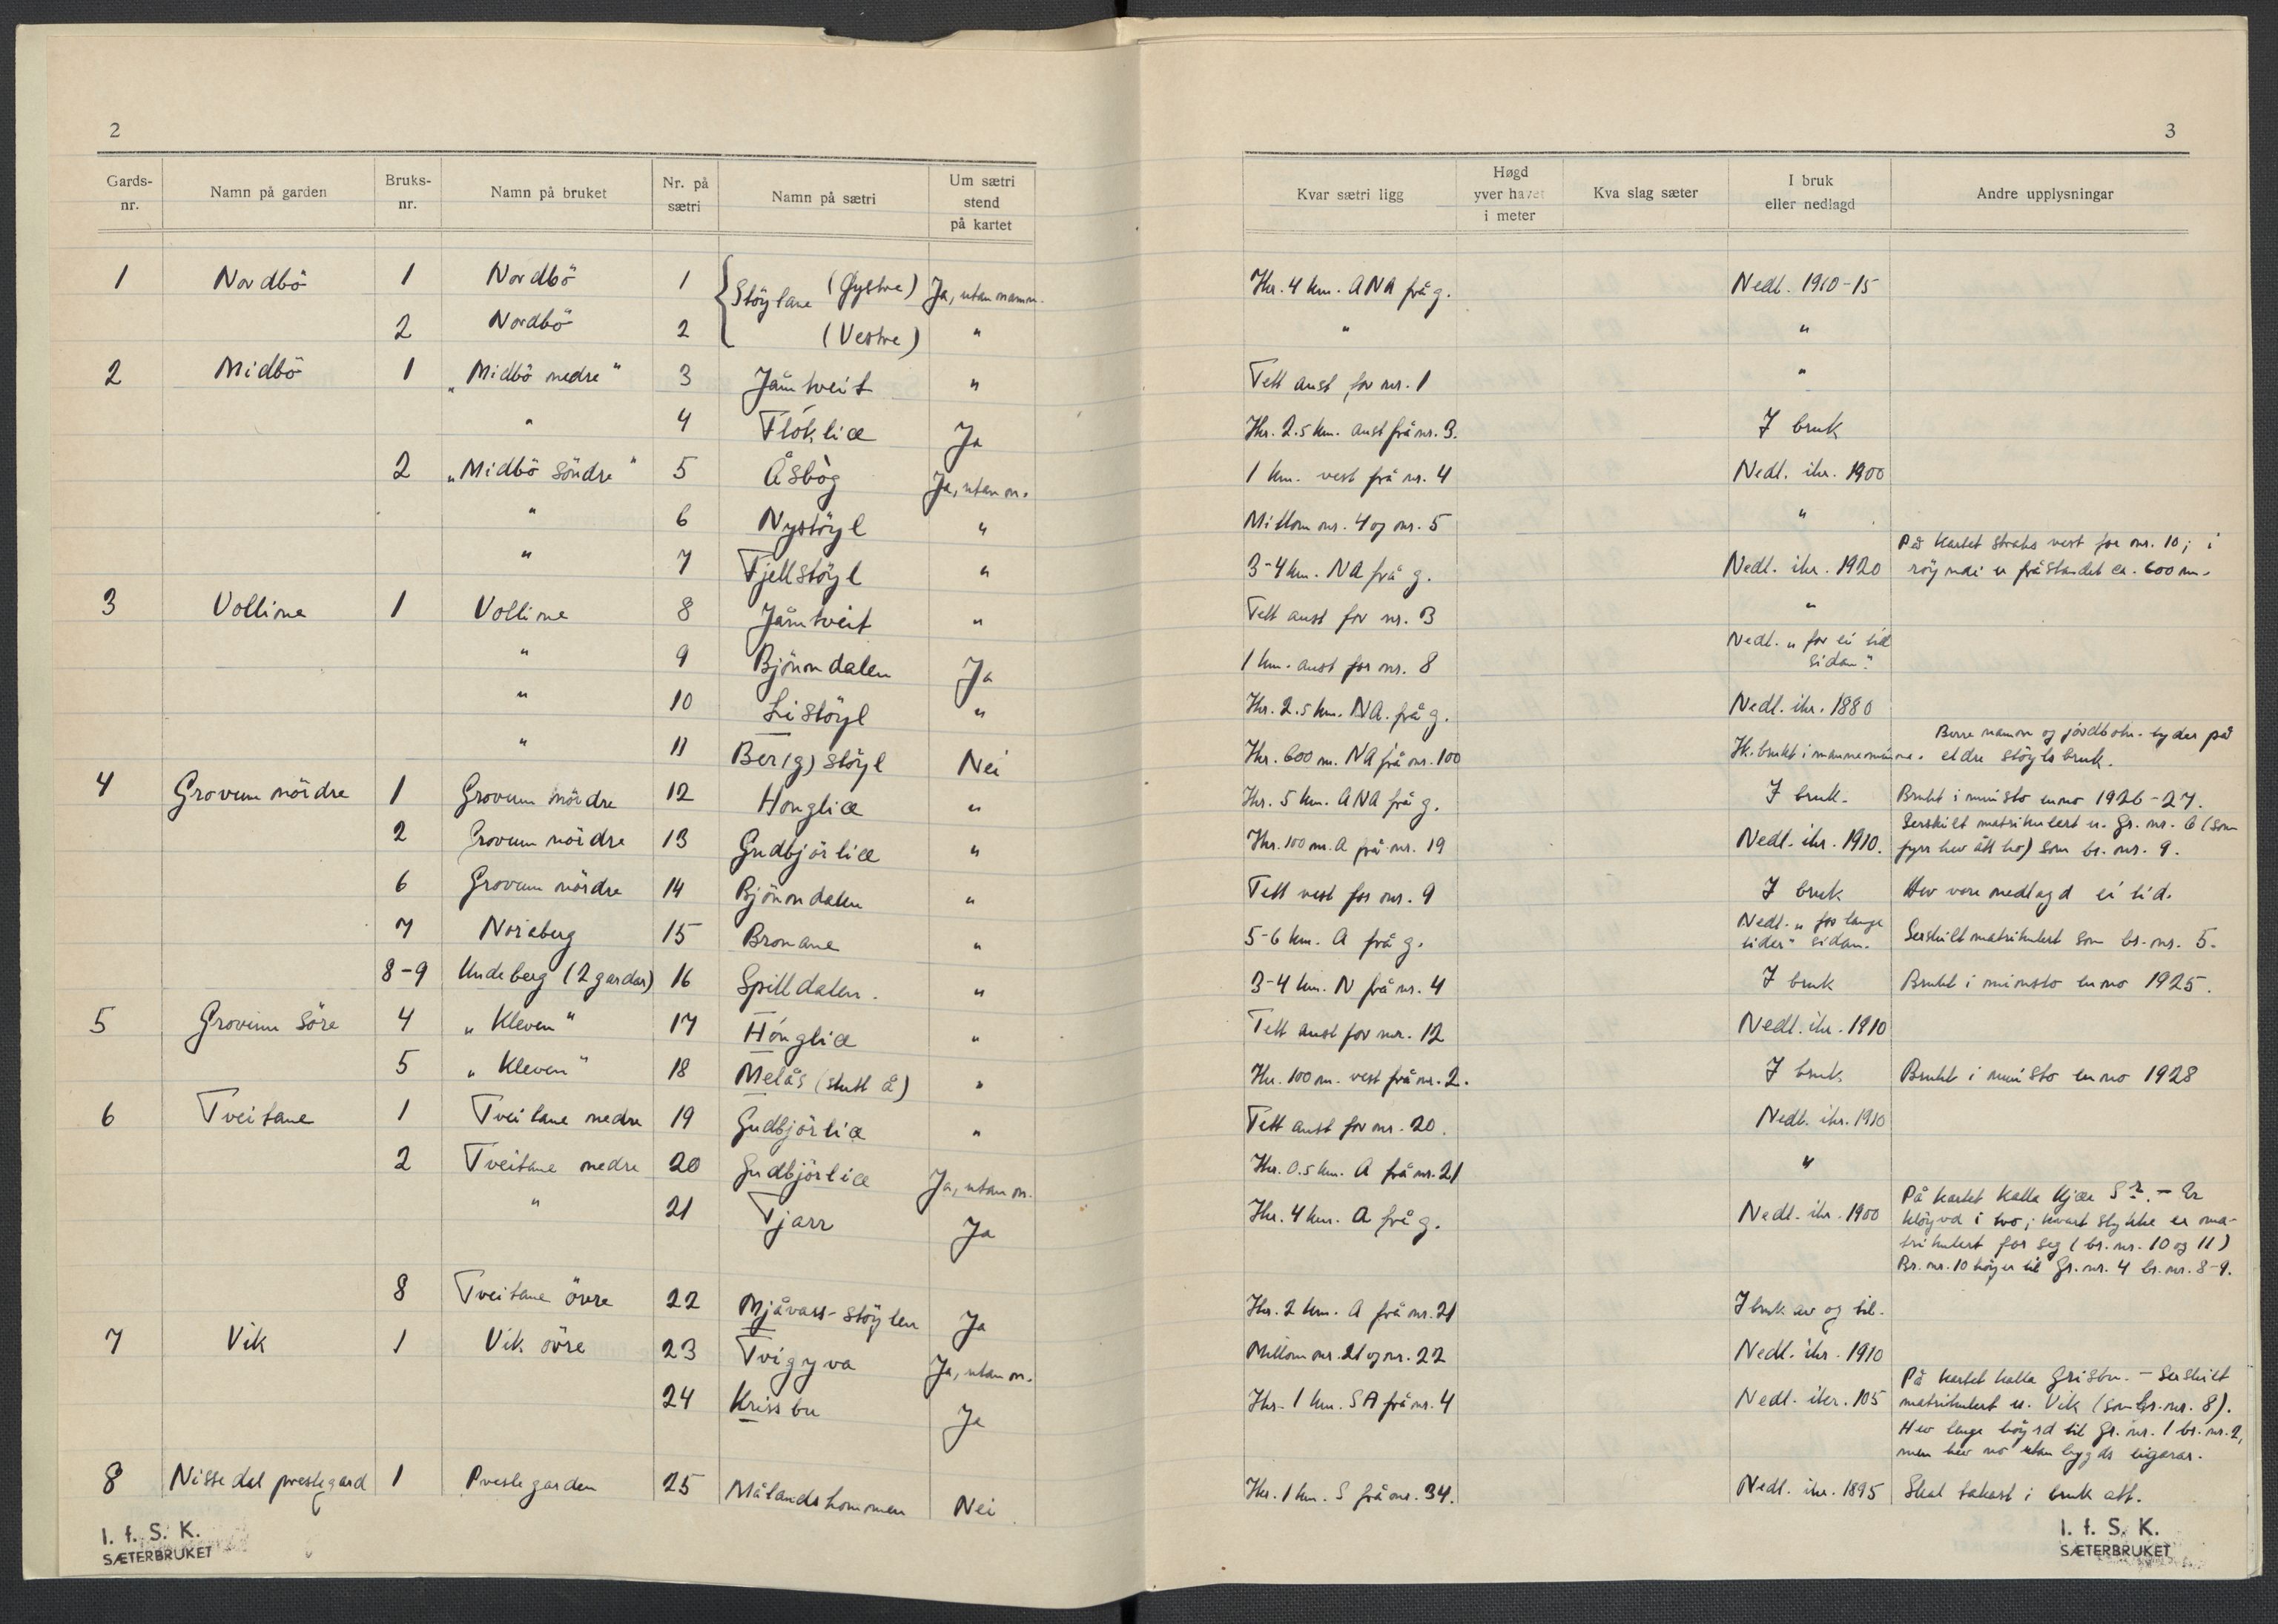 2
3
Gards-nr. Namn på garden Bruks-nr. Namn på bruket Nr. på sætri Namn på sætri Um sætri stend på kartet Kvar sætri ligg Høgd yver havet i meter Kva slag sæter I bruk eller nedlagd Andre upplysningar
1 Nordbö 1 Nordbö 1 Stöylane (Öystre) Ja, utan namn. Ikr. 4 km. ANA frå g. Nedl. 1910-15
2 Nordbö 2 (Vestre) " " "
2 Midbö 1 "Midbö nedre" 3 Jåmtveit " Tett aust for nr. 1 "
" 4 Flòklia Ja Ikr. 2.5 km. aust frå nr. 3. I bruk
2 "Midbö söndre" 5 Åsbòg Ja, utan n. 1 km. vest frå nr. 4 Nedl. ikr. 1900
" 6 Nystöyl " Millom nr. 4 og nr. 5 "
" 7 Fjellstöyl " 3-4 km. NA frå g. Nedl. ikr. 1920 På kartet straks vest for nr. 10; i
röyndi er fråstandet ca. 600 m.
3 Volline 1 Volline 8 Jåmtveit " Tett aust for nr. 3 "
" 9 Bjönndalen Ja 1 km. aust for nr. 8 Nedl. "for ei tid
sidan".
" 10 Listöyl " Ikr. 2.5 km. NA. frå g. Nedl. ikr. 1880
" 11 Ber(g)stöyl Nei Ikr. 600 m. NA frå nr. 100 Ik. brukt i manneminne. Berre namn og jordbotn tyder på
eldre stöylsbruk.
4 Grovum nördre 1 Grovum nördre 12 Honglia " Ikr. 5 km. ANA frå g. I bruk. Brukt i minsto enno 1926-27.
2 Grovum nördre 13 Gudbjörlia " Ikr. 100 m. A frå nr. 19 Nedl. ikr. 1910. Serskilt matrikulert u. Gr. nr. 6 (som
fyrr hev ått ho) som br. nr. 9.
6 Grovum nördre 14 Bjönndalen " Tett vest for nr. 9 I bruk Hev vore nedlagd ei tid.
7 Noreberg 15 Bronane " 5-6 km. A frå g. Nedl. "for lange
tider" sidan. Serskilt matrikulert som br. nr. 5.
8-9 Undeberg (2 gardar) 16 Spilldalen. " 3-4 km. N frå nr. 4 I bruk Brukt i minsto enno 1925.
5 Grovum söre 4 "Kleven" 17 Hònglia " Tett aust for nr. 12 Nedl. ikr. 1910
5 "Kleven" 18 Melås (stutt å) " Ikr. 100 m. vest frå nr. 2. I bruk Brukt i minsto enno 1928
6 Tveitane 1 Tveitane nedre 19 Gudbjörlia " Tett aust for nr. 20. Nedl. ikr. 1910
2 Tveitane nedre 20 Gudbjörlia Ja, utan n. Ikr. 0.5 km. A frå nr. 21 "
" 21 Tjarr Ja Ikr. 4 km. A frå g. Nedl. ikr. 1900 På kartet kalla Kjær Sr. - Er
klöyvd i tvo; kvart stykke er ma-
trikulert for seg (br. nr. 10 og 11)
Br. nr. 10 höyrer til Gr. nr. 4 br. nr. 8-9.
8 Tveitane övre 22 Mjåvass-stöylen Ja Ikr. 2 km. A frå nr. 21 I bruk av og til.
7 Vik 1 Vik övre 23 Tvigyva Ja, utan n. Millom nr. 21 og nr. 22 Nedl. ikr. 1910
24 Krissbu Ja Ikr. 1 km. SA frå nr. 4 Nedl. ikr. 105 På kartet kalla Grisbu. - Serskilt
matrikulert u. Vik (som br. nr. 8).
Hev lenge höyrd til Gr. nr. 1 br. nr. 2,
men hev no utanbygds eigarar.
8 Nissedal prestegard 1 Prestegarden 25 Målandshommen Nei Ikr. 1 km. S frå nr. 34. Nedl. ikr. 1895 Skal takast i bruk att.
I. f. S. K.
SÆTERBRUKET
I. f. S. K.
SÆTERBRUKET